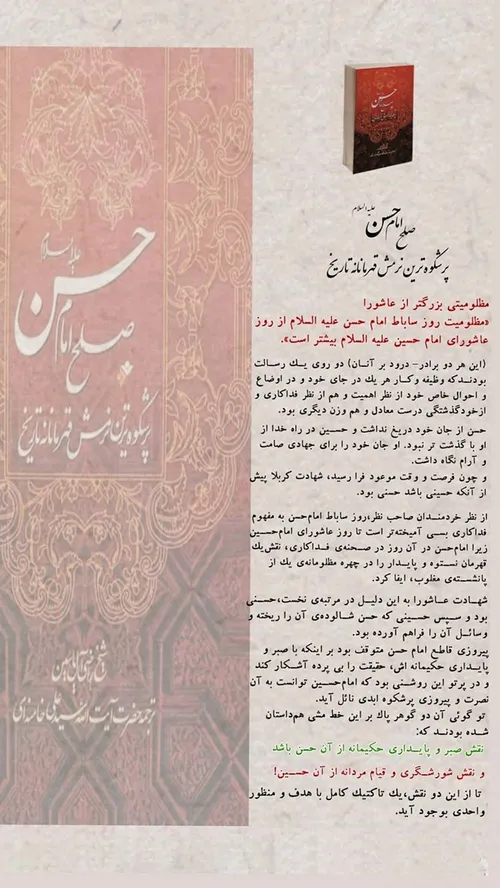 علیه السلام
صلح امام حسن
پرشکوه‌ترین نرمش قهرمانانه تاریخ
مظلومیتی بزرگتر از عاشورا
«مظلومیت روز ساباط امام حسن علیه السلام از روز
عاشورای امام حسین علیه السلام بیشتر است».
(این هر دو برادر- درود بر آنـان) دو روی یـك رسـالت
بودنـدکه وظیفه وکـار هر یك در جای خود و در اوضاع
و احوال خاص خود از نظر اهمیت و هم از نظر فداکاری و
ازخودگذشتگی درست معادل و هم وزن دیگری بود.
حسن از جان خود دریغ نداشت و حسـین در راه خدا از
او با گذشت تر نبود. او جان خود را برای جهادی صامت
و آرام نگاه داشت.
و چون فرصت و وقت موعود فرا رسید، شهادت کربلا پیش
از آنکه حسینی باشد حسنی بود.
از نظر خردمنـدان صاحب نظر،روز ساباط امام‌حسن به مفهوم
فداکاری بسـی آمیخته‌تر است تا روز عاشورای امام‌حسـین
زیرا امام‌حسن در آن روز در صحنه‌ی فـداکاری، نقش‌یك
قهرمان نستوه و پایـدار را در چهره مظلومانه‌ی یك از
پانشسـته‌ی مغلوب، ایفا کرد.
شـهادت عـاشورا به این دلیـل در مرتبه‌ی نخست،حسـنی
بود و سـپس حسـینی که حسن شـالوده‌ی آن را ریخته و
وسـائل آن را فراهم آورده بود.
پیروزی قاطع امام حسن متوقف بود بر اینکه با صبر و
پایـداری حکیمانه اش، حقیقت را بی پرده آشـکار کند
و در پرتو این روشـنی بود که امام‌حسـین توانست به آن
نصرت و پیروزی پرشکوه ابدی نائل آید.
تو گوئی آن دو گوهر پاك بر این خط مشی هم‌داستان
شـده بودنـد که:
نقش صبر و پایـداری حکیمانه از آن حسن باشد
و نقش شورشـگری و قیام مردانه از آن حسـین!
تا از این دو نقش،یك تاکتیك کامل با هدف و منظور
واحدی بوجود آید.
علیه السلام
صلح امام حسن
پرشکوه‌ترین نرمش قهرمانانه تاریخ
شیخ راضی آل یاسین
ترجمه حضرت آیت الله سید علی خامنه‌ای